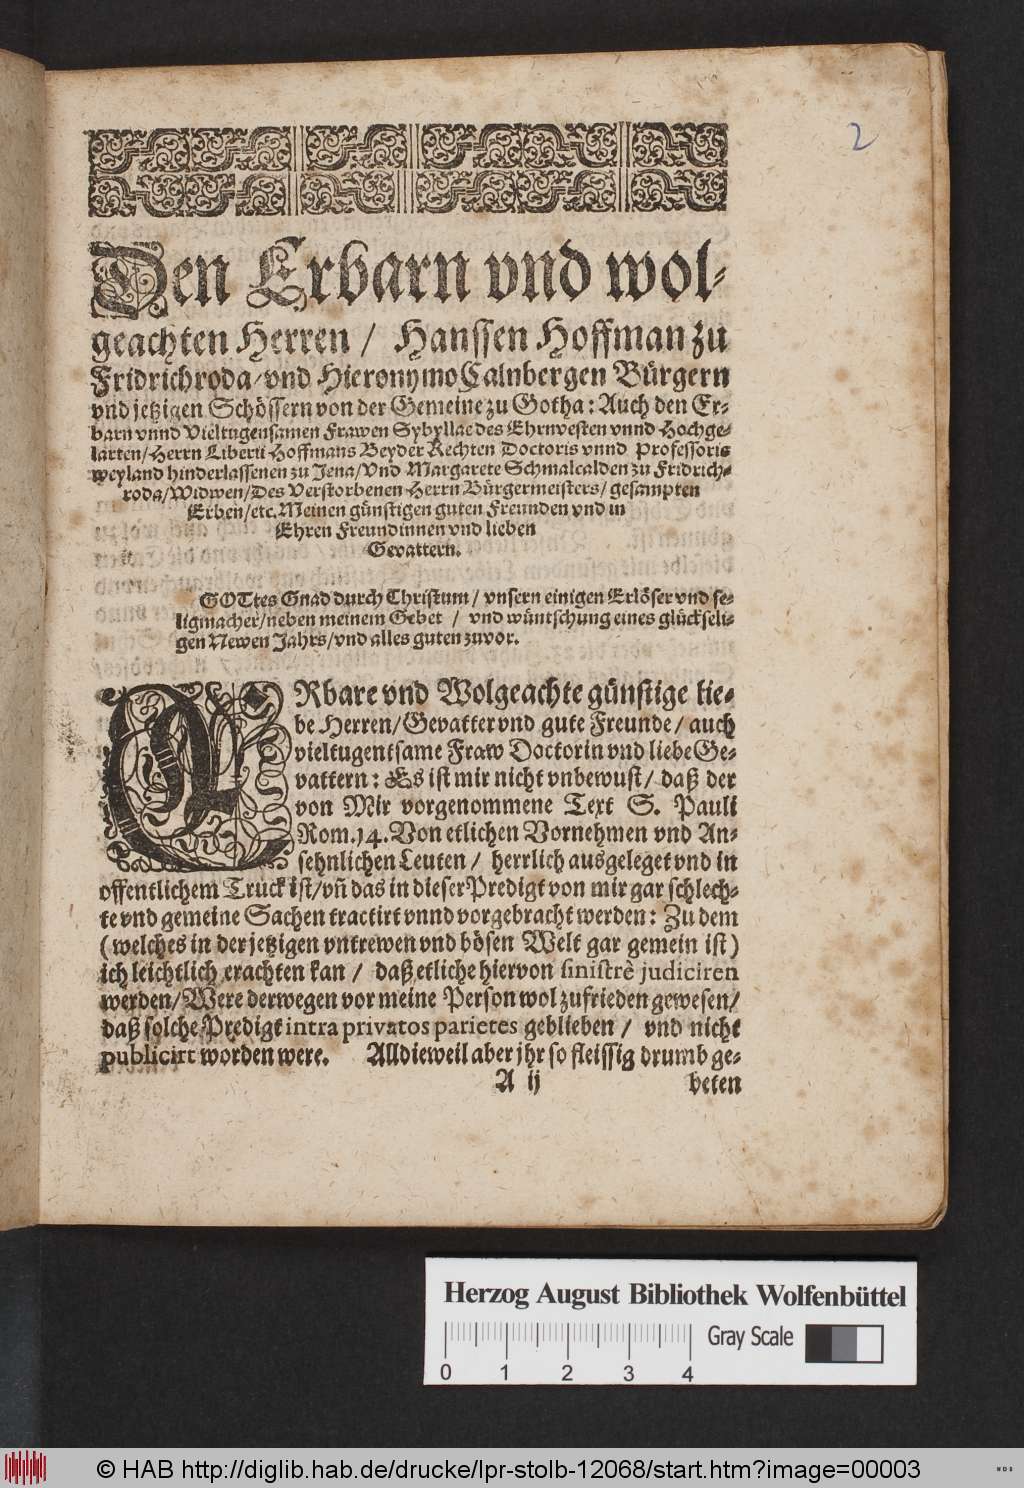 2
Den Erbarn vnd wol-
geachten Herren / Hanssen Hoffman zu
Fridrichroda / vnd Hieronymo Calnbergen Bürgern
vnd jetzigen Schössern von der Gemeine zu Gotha : Auch den Er-
barn vnnd Vieltugensamen Frawen Sybyllae des Ehrnvesten vnnd Hochge-
larten / Herrn Liberii Hoffmans Beyder Rechten Doctoris vnnd Professoris
weyland hinderlassenen zu Jena / Vnd Margarete Schmalcalden zu Fridrich-
roda / Widwen / Des Verstorbenen Herrn Bürgermeisters / gesampten
Erben / etc. Meinen günstigen guten Freunden vnd in
Ehren Freundinnen vnd lieben
Gevattern.
GOTtes Gnad durch Christum / vnsern einigen Erlöser vnd se-
ligmacher / neben meinem Gebet / vnd wüntschung eines glückseli-
gen Newen Jahrs / vnd alles guten zuvor.
ERbare vnd Wolgeachte günstige lie-
be Herren / Gevatter vnd gute Freunde / auch
vieltugentsame Fraw Doctorin vnd liebe Ge-
vattern : Es ist mir nicht vnbewust / daß der
von Mir vorgenommene Text S. Pauli
Rom. 14. Von etlichen Vornehmen vnd An-
sehnlichen Leuten / herrlich ausgeleget vnd in
offentlichem Trück ist / vn̄ das in dieser Predigt von mir gar schlech-
te vnd gemeine Sachen tractirt vnnd vorgebracht werden : Zu dem
( welches in der jetzigen vntrewen vnd bösen Welt gar gemein ist )
ich leichtlich erachten kan / daß etliche hiervon sinistrè judiciren
werden / Were derwegen vor meine Person wol zufrieden gewesen /
daß solche Predigt intra privatos parietes geblieben / vnd nicht
publicirt worden were. Alldieweil aber jhr so fleissig drumb ge-
A ij beten
Herzog August Bibliothek Wolfenbüttel
0 1 2 3 4 Gray Scale
© HAB http://diglib.hab.de/drucke/lpr-stolb-12068/start.htm?image=00003